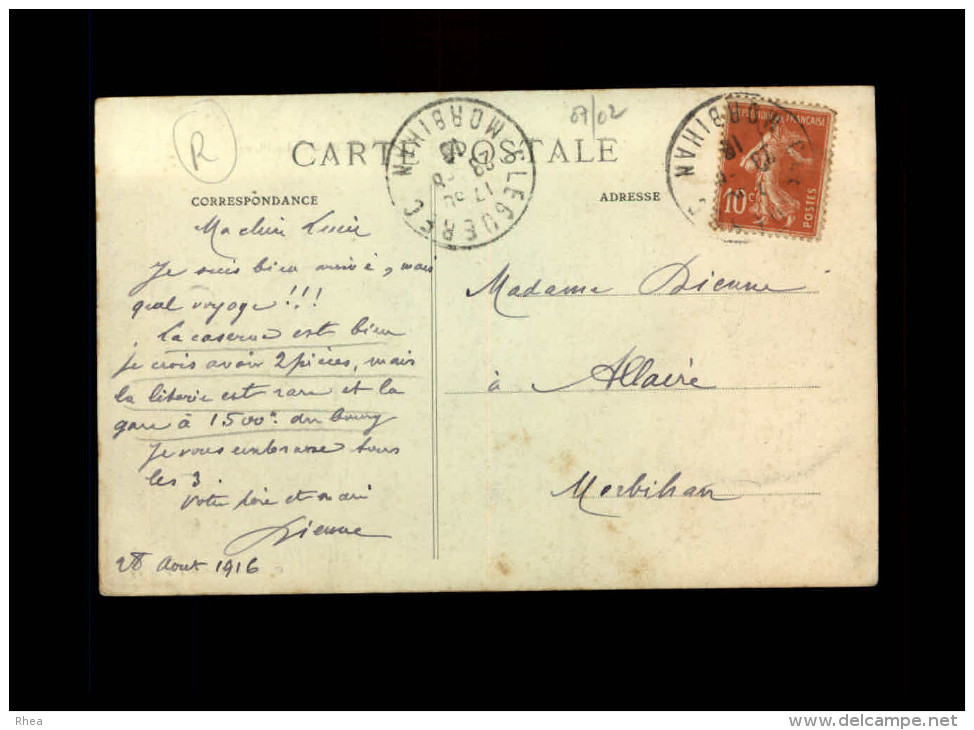 R
07/02
CARTE POSTALE
SLE GUEREC
MORBIHAN
17 30
29 - 8
16
MORBIHAN
RÉPUBLIQUE FRANÇAISE
10 c
POSTES
CORRESPONDANCE
ADRESSE
Ma chère Lucie
Je suis bien arrivé, mais
quel voyage !!!
La caserne est bien
je crois avoir 2 pièces, mais
la literie est rare et la
gare à 1500m du bourg
Je vous embrasse tous
les 3.
Votre père et mari
Dienne
28 Aout 1916
Madame Dienne
à Allaire
Morbihan
Rhea
www.delcampe.net